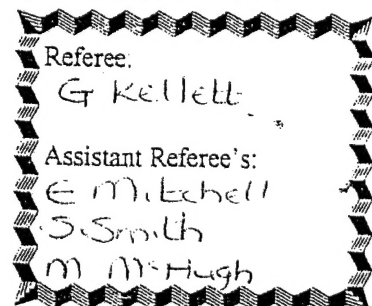 Referee:
G Kellett
Assistant Referee's:
E Mitchell
S. Smith
M McHugh